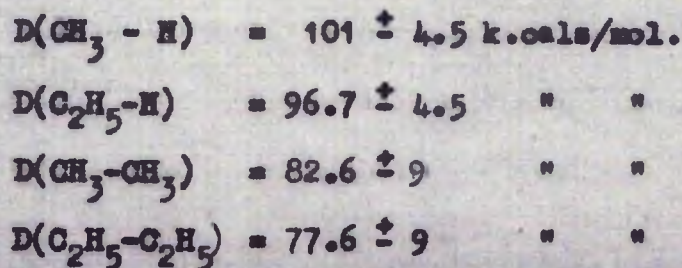 D(CH₃ - H) = 101 ± 4.5 k.cals/mol.
D(C₂H₅-H) = 96.7 ± 4.5 " "
D(CH₃-CH₃) = 82.6 ± 9 " "
D(C₂H₅-C₂H₅) = 77.6 ± 9 " "